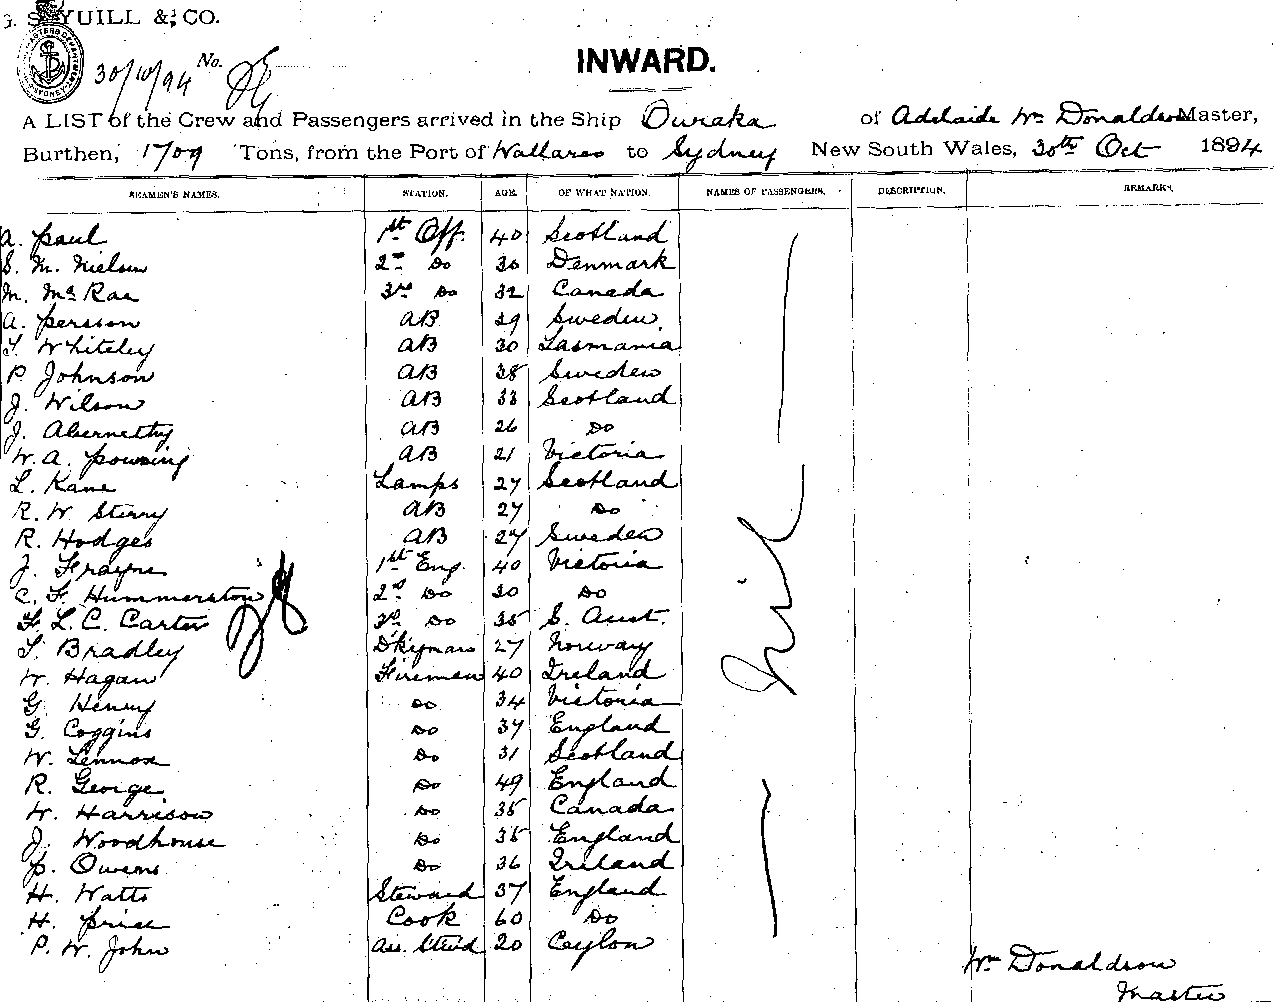 G. S. YUILL & CO.
30/10/94 No.
INWARD.
A LIST of the Crew and Passengers arrived in the Ship Ouraka of Adelaide Wm Donaldson Master,
Burthen, 1709 Tons, from the Port of Wallaroo to Sydney New South Wales, 30th Oct 1894
SEAMEN'S NAMES. STATION. AGE. OF WHAT NATION. NAMES OF PASSENGERS. DESCRIPTION. REMARKS.
A. Paul 1st Off. 40 Scotland
S. M. Nielsen 2nd Do 30 Denmark
M. McRae 3rd Do 32 Canada
A. Persson AB 29 Sweden
T. Whiteley AB 30 Tasmania
P. Johnson AB 38 Sweden
J. Wilson AB 33 Scotland
J. Abernethy AB 26 Do
W. A. AB 21 Victoria
L. Kane Lamps 27 Scotland
R. W Sterry AB 27 Do
R. Hodges AB 27 Sweden
J. Frayne 1st Eng. 40 Victoria
C. F. Hummerston 2nd Do 30 Do
F. L. C. Carter 3rd Do 35 S. Aust.
T. Bradley D'kyman 27 Norway
W. Hagan Firemen 40 Ireland
G. Henry Do 34 Victoria
G. Coggins Do 37 England
W. Lennox Do 31 Scotland
R. George Do 49 England
W. Harrison Do 35 Canada
J. Woodhouse Do 35 England
P. Owens Do 36 Ireland
H. Watts Steward 37 England
H. Price Cook 60 Do
P. W. John Ass. Stwd 20 Ceylon
Nil
Wm Donaldson
Master